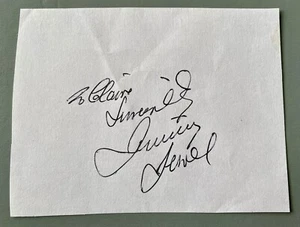 To Claire
Sincerely
Jimmy
Jewel